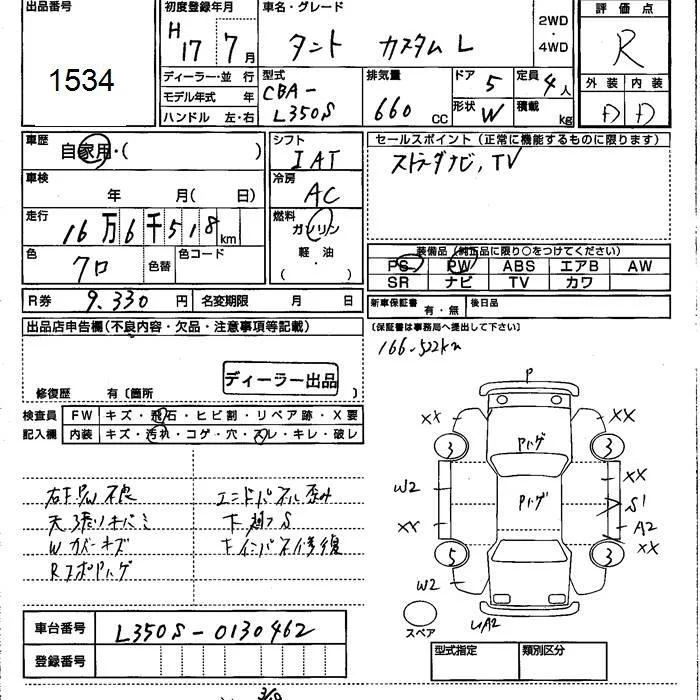 出品番号
1534
初度登録年月
H17 7月
車名・グレード
タント カスタム L
2WD
・
4WD
評価点
R
ディーラー・並行
モデル年式 年
ハンドル 左・右
型式
CBA-
L350S
排気量
660 cc
ドア 5
形状 W
定員 4人
積載 kg
外装 内装
D D
車歴
自家用・( )
シフト
IAT
セールスポイント(正常に機能するものに限ります)
TV
車検
年 月( 日)
冷房
AC
走行
16万6千518km
燃料
ガソリン
軽油
( )
色
クロ
色替
色コード
装備品(純正品に限り○をつけてください)
PS PW ABS エアB AW
SR ナビ TV カワ
R券 9,330円
名変期限 月 日
新車保証書 有・無
後日品
(保証書は事務局へ提出して下さい)
166-522km
出品店申告欄(不良内容・欠品・注意事項等記載)
ディーラー出品
修復歴 有〔箇所 〕
検査員
記入欄
FW キズ・飛石・ヒビ割・リペア跡・X要
内装 キズ・汚れ・コゲ・穴・スレ・キレ・破レ
P
XX XX
3 3
Pハゲ
Pハゲ
W2 XX
S1
XX A2
XX
5 3
W2
A2
スペア
W カバーキズ
車台番号 L350S-0130462
登録番号
型式指定 類別区分